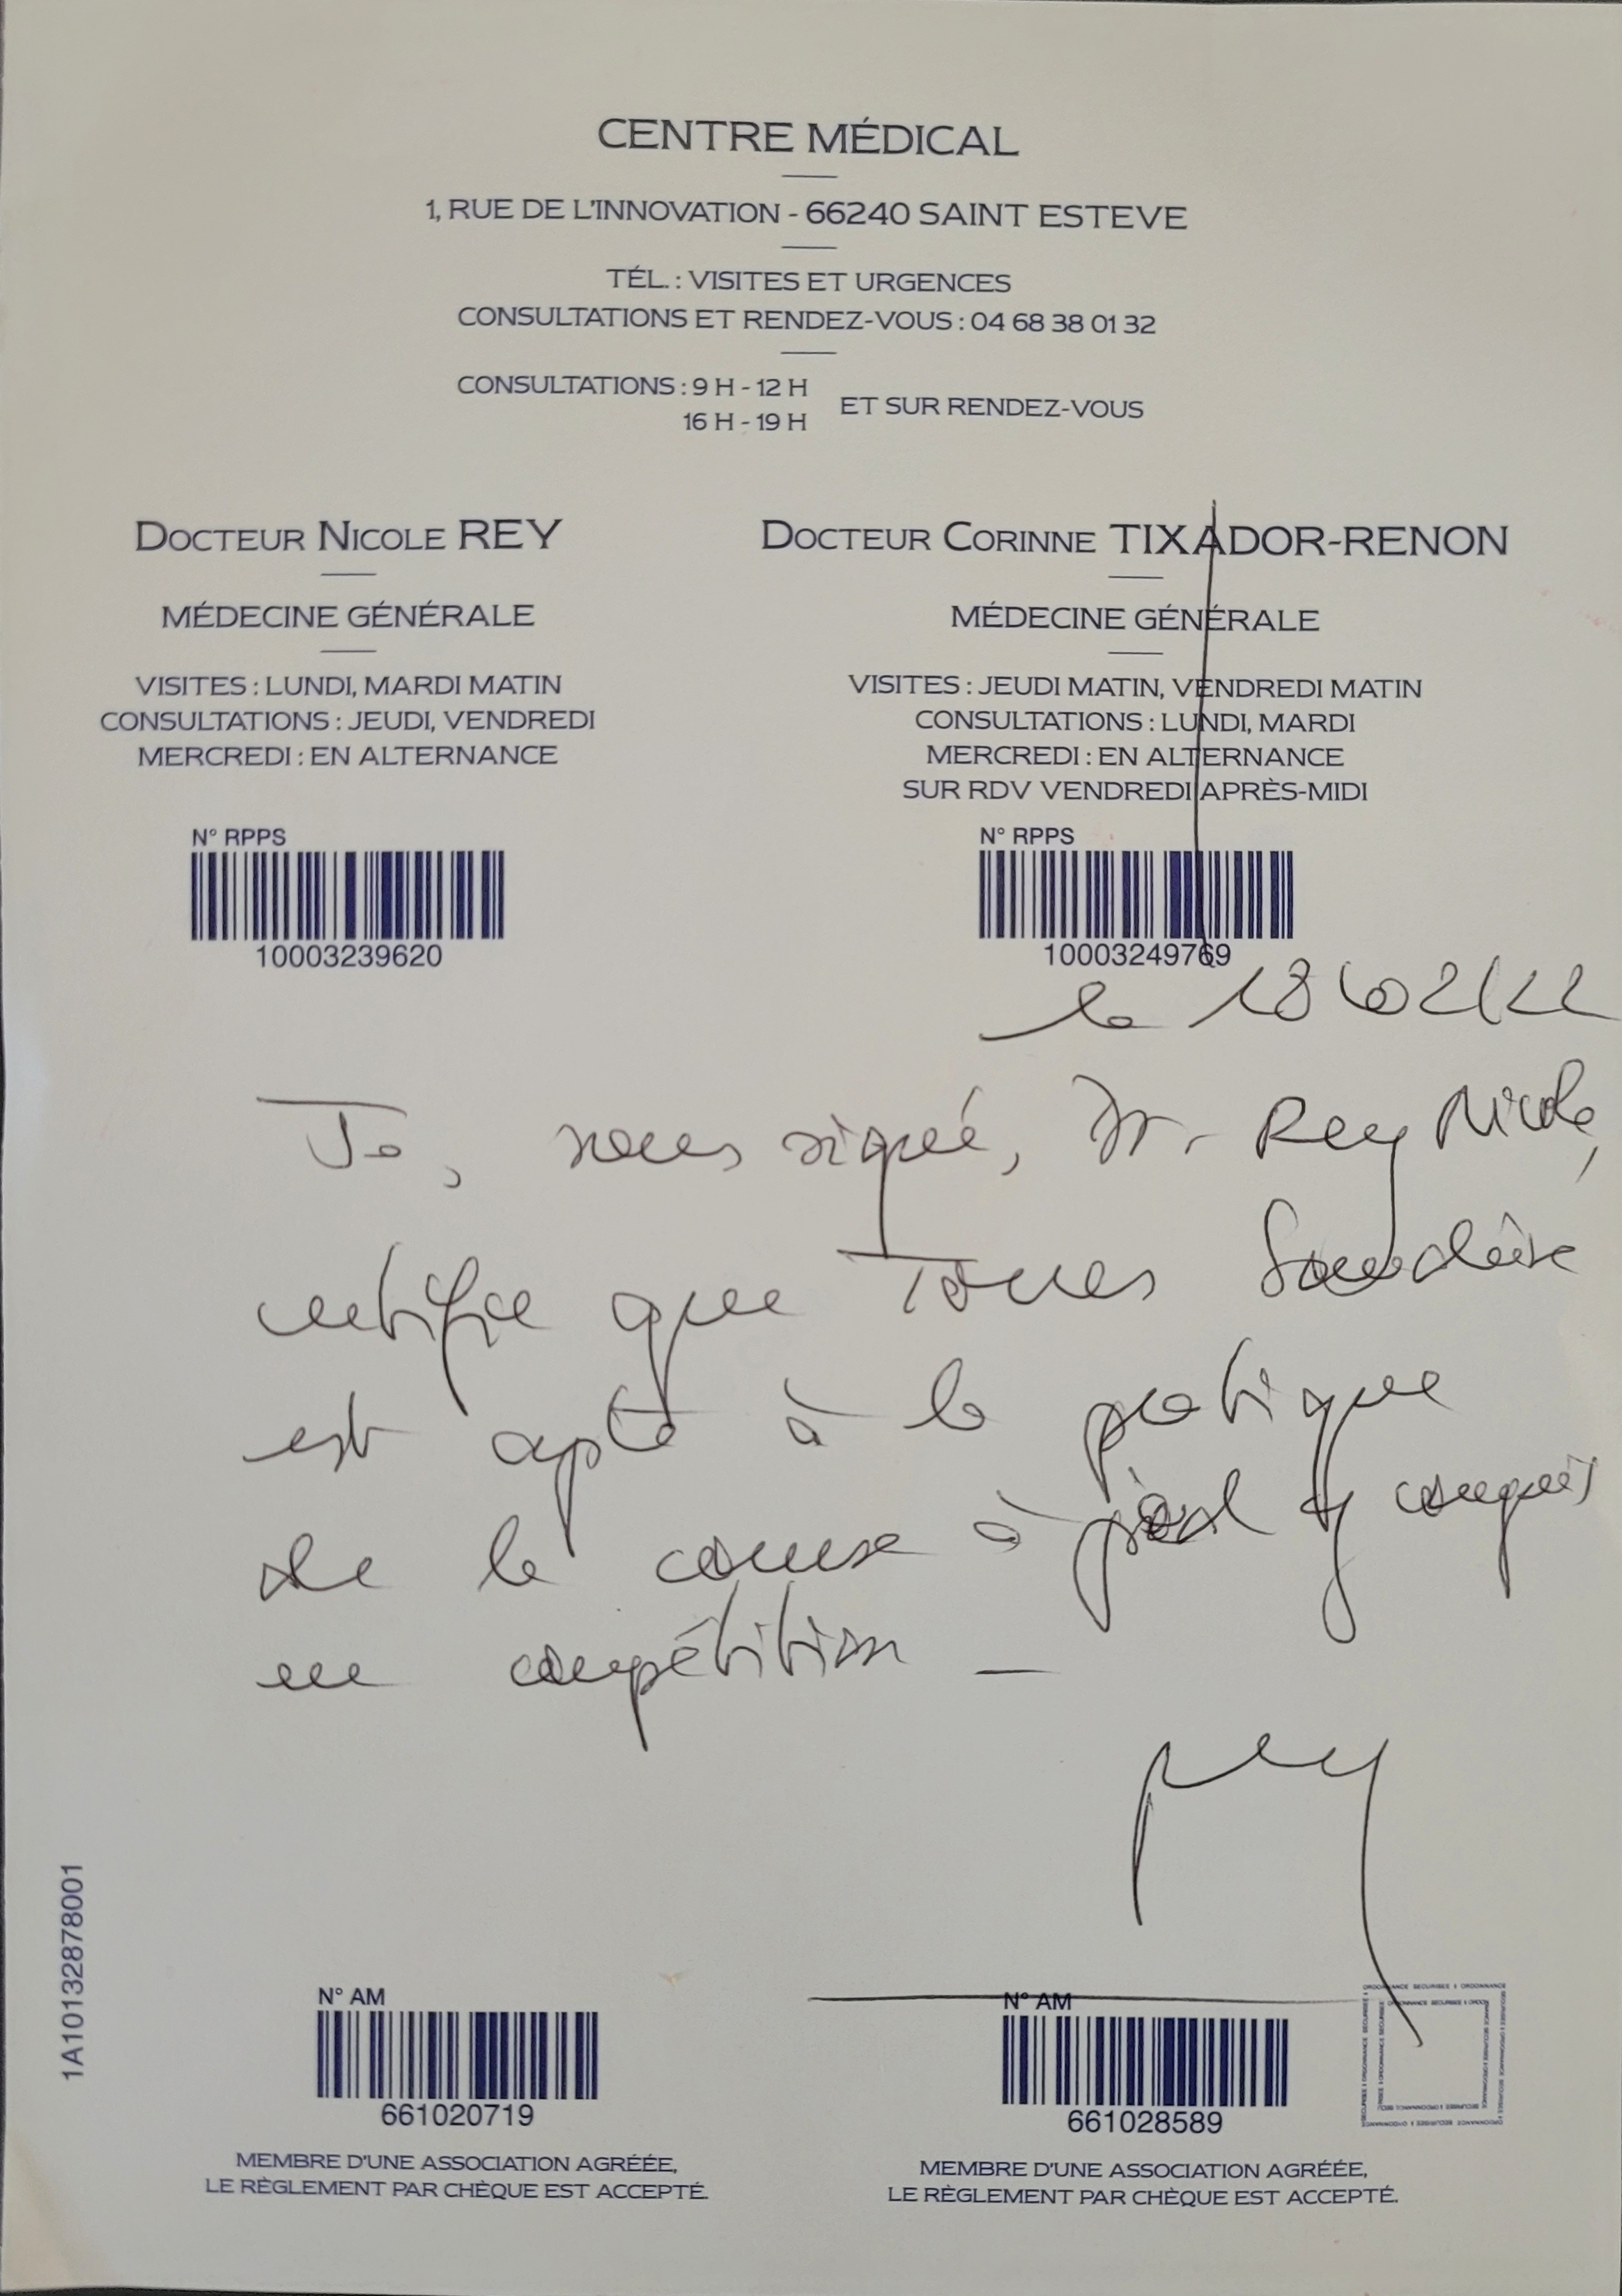 CENTRE MÉDICAL
1, RUE DE L'INNOVATION - 66240 SAINT ESTEVE
TÉL. : VISITES ET URGENCES
CONSULTATIONS ET RENDEZ-VOUS : 04 68 38 01 32
CONSULTATIONS : 9 H - 12 H
16 H - 19 H
ET SUR RENDEZ-VOUS
DOCTEUR NICOLE REY
MÉDECINE GÉNÉRALE
VISITES : LUNDI, MARDI MATIN
CONSULTATIONS : JEUDI, VENDREDI
MERCREDI : EN ALTERNANCE
N° RPPS
10003239620
DOCTEUR CORINNE TIXADOR-RENON
MÉDECINE GÉNÉRALE
VISITES : JEUDI MATIN, VENDREDI MATIN
CONSULTATIONS : LUNDI, MARDI
MERCREDI : EN ALTERNANCE
SUR RDV VENDREDI APRÈS-MIDI
N° RPPS
10003249769
le 18/02/22
Je, sous signé, Dr. Rey Nicole,
certifie que
est apte à la pratique
de la course à pied y compris
en compétition
Rey
1A10132878001
N° AM
661020719
MEMBRE D'UNE ASSOCIATION AGRÉÉE,
LE RÈGLEMENT PAR CHÈQUE EST ACCEPTÉ.
N° AM
661028589
MEMBRE D'UNE ASSOCIATION AGRÉÉE,
LE RÈGLEMENT PAR CHÈQUE EST ACCEPTÉ.
ORDONNANCE SECURISEE